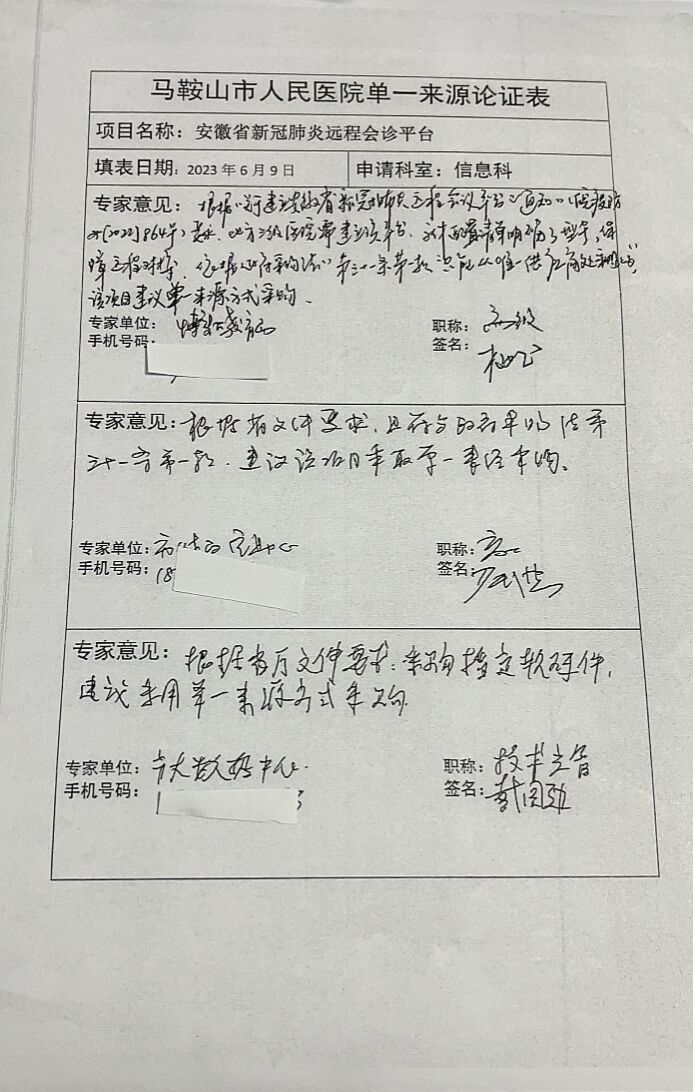 马鞍山市人民医院单一来源论证表
项目名称：安徽省新冠肺炎远程会诊平台
填表日期：2023年6月9日 申请科室：信息科
专家意见：根据《关于建设安徽省新冠肺炎远程会议平台的通知》
[2022]864号）要求，地方三级医院需建设该平台，清单明确了型号，保
障工程 政府采购法》第三十一条第一款 只能从唯一供应商处采购的，
该项目建议单一来源方式采购。
专家单位： 职称：高级
手机号码： 签名：
专家意见：根据省文件要求，且符合政府采购法第
三十一条第一款，建议该项目采取单一来源采购。
专家单位： 职称：高工
手机号码：18 签名：
专家意见：根据省厅文件要求，采购指定软硬件，
建议采用单一来源方式采购
专家单位：市大数据中心 职称：技术主管
手机号码： 签名：戴国勁